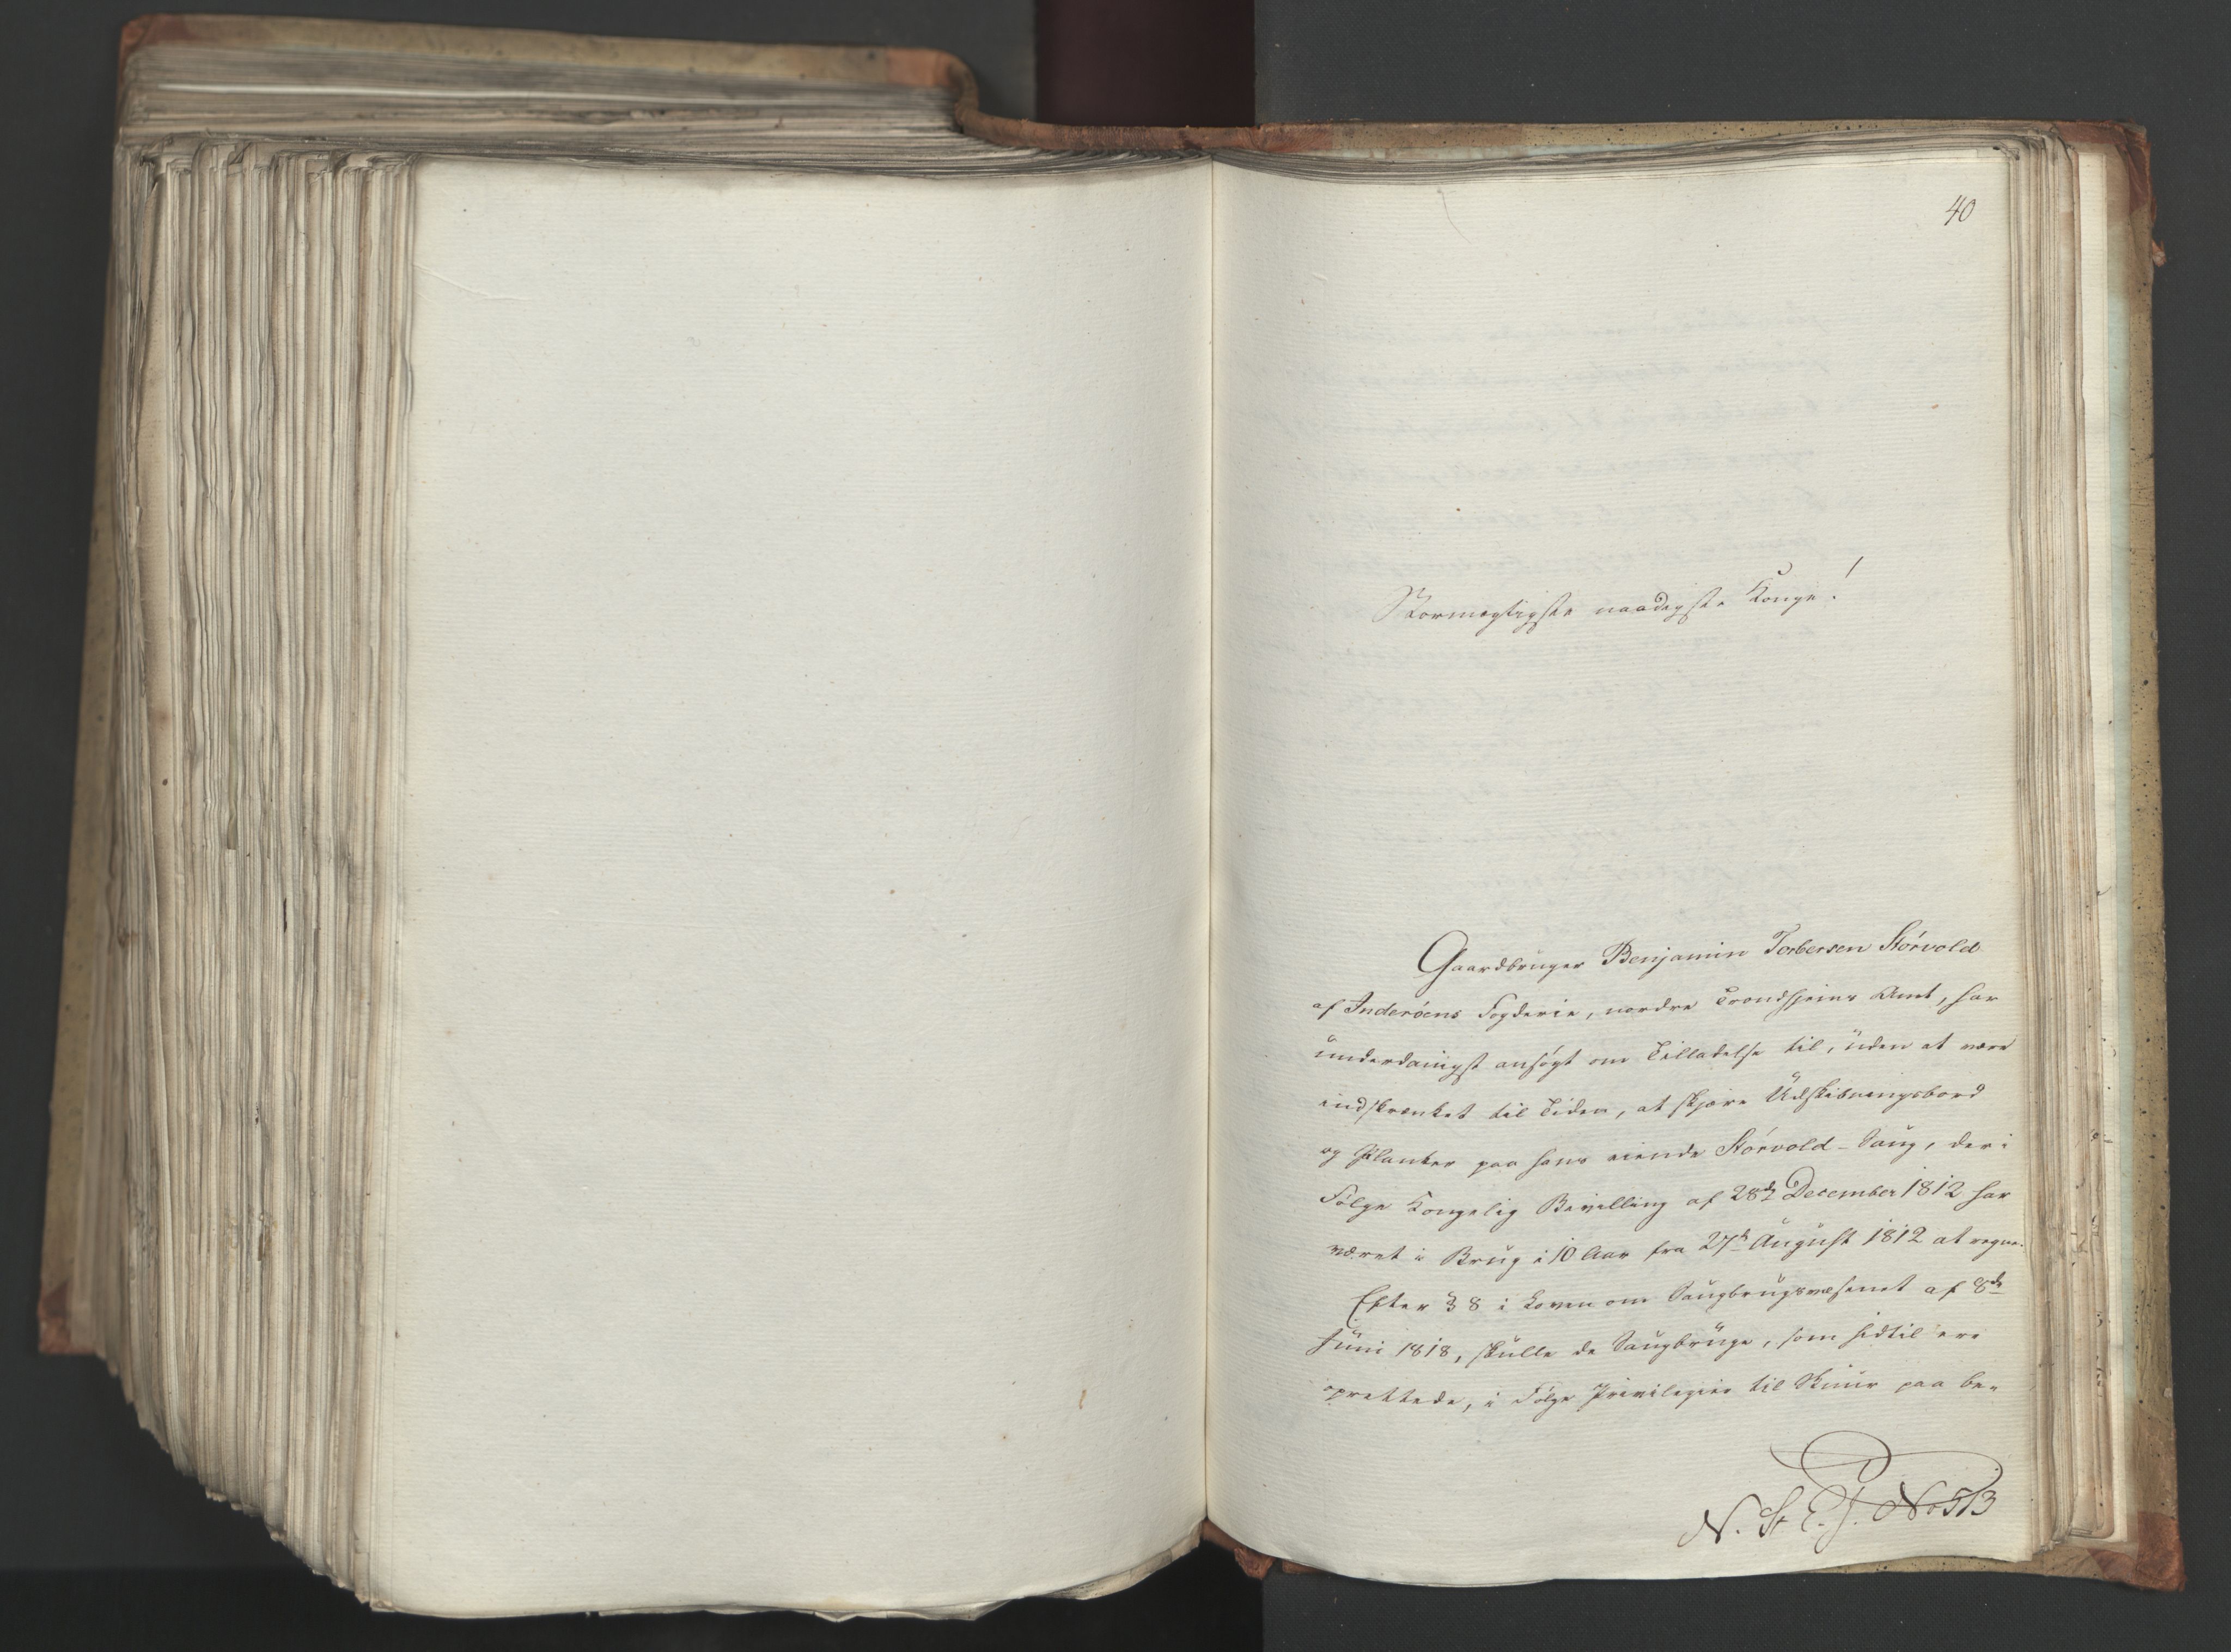 40
Stormægtigste naadigste Konge!
Gaardbruger Benjamin Torbersen Störvold
af Inderöens Fogderie, nordre Trondhjems Amt, har
underdanigst ansögt om Tilladelse til, uden at være
indskrænket til Tiden, at skjære Udskibningsbord
og Planker paa hans eiende Störvold-Saug, der i
Fölge Kongelig Bevilling af 28de December 1812 har
været i Brug i 10 Aar fra 27de August 1812 at regne.
Efter § 8 i Loven om Saugbrugsvæsenet af 8de
Juni 1818, skulle de Saugbruge, som hidtil ere
oprettede, i Fölge Privilegier til Skuur paa be-
N. St. E. J. No 513